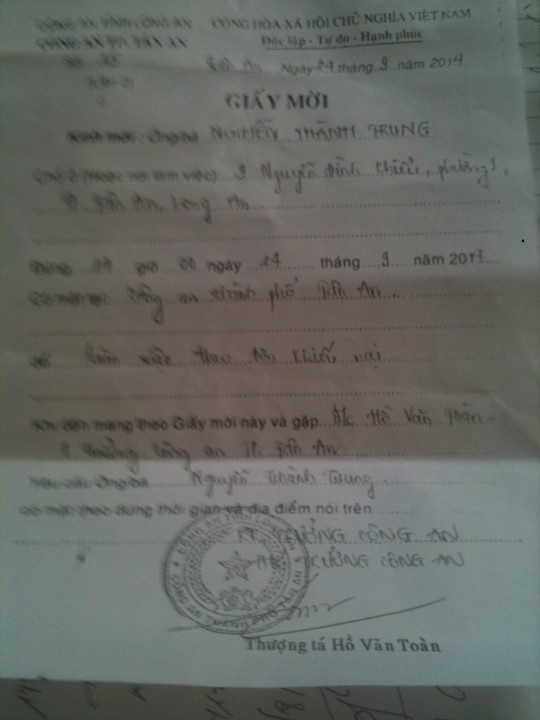 CÔNG AN TỈNH LONG AN
CÔNG AN TP. TÂN AN
CỘNG HÒA XÃ HỘI CHỦ NGHĨA VIỆT NAM
Độc lập - Tự do - Hạnh phúc
Tân An Ngày 24 tháng 9 năm 2017
GIẤY MỜI
Kính mời: Ông bà NGUYỄN THÀNH TRUNG
Chỗ ở (hoặc nơi làm việc) 9 Nguyễn Đình Chiểu, phường 1,
TP Tân An, Long An
giờ 00 ngày 24 tháng 9 năm 2017
Có mặt tại Công an thành phố Tân An
Để Làm việc theo đơn khiếu nại
Khi đến mang theo Giấy mời này và gặp Đ/c Hồ Văn Toàn -
Trưởng Công an TP. Tân An
Yêu cầu Ông bà Nguyễn Thành Trung
có mặt theo đúng thời gian và địa điểm nói trên
TRƯỞNG CÔNG AN
TRƯỞNG CÔNG AN
Thượng tá Hồ Văn Toàn